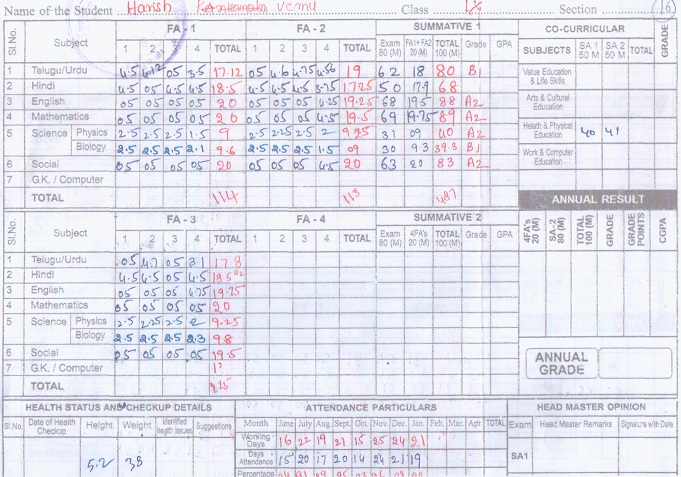 Name of the Student Harish Vemu Class IX Section (16)
Sl.No. Subject FA - 1 FA - 2 SUMMATIVE 1
1 2 3 4 TOTAL 1 2 3 4 TOTAL Exam 80 (M) FA1+ FA2 20 (M) TOTAL 100 (M) Grade GPA
1 Telugu/Urdu 4.5 4.12 05 3.5 17.12 05 4.6 4.75 4.56 19 62 18 80 B1
2 Hindi 4.5 05 4.5 4.5 18.5 4.5 4.5 4.5 3.75 17.25 50 17.9 68
3 English 05 05 05 05 20 05 05 05 4.25 19.25 68 19.5 88 A2
4 Mathematics 05 05 05 05 20 05 05 05 4.5 19.5 69 19.75 89 A2
5 Science Physics 2.5 2.5 2.5 1.5 9 2.5 2.25 2.5 2 9.25 31 09 40 A2
Biology 2.5 2.5 2.5 2.1 9.6 2.5 2.5 2.5 1.5 09 30 9.3 39.3 B1
6 Social 05 05 05 05 20 05 05 05 4.5 20 63 20 83 A2
7 G.K. / Computer
TOTAL 114 113 487
CO-CURRICULAR
SUBJECTS SA 1 50 M SA 2 50 M TOTAL GRADE
Value Education & Life Skills
Arts & Cultural Education
Health & Physical Education 40 41
Work & Computer Education
ANNUAL RESULT
4FA's 20 (M) SA-2 80 (M) TOTAL 100 (M) GRADE GRADE POINTS CGPA
ANNUAL GRADE
Sl.No. Subject FA - 3 FA - 4 SUMMATIVE 2
1 2 3 4 TOTAL 1 2 3 4 TOTAL Exam 80 (M) 4FA's 20 (M) TOTAL 100 (M) Grade GPA
1 Telugu/Urdu 05 4.7 05 3.1 17.8
2 Hindi 4.5 4.5 05 4.5 18.5
3 English 05 05 05 4.75 19.75
4 Mathematics 05 05 05 05 20
5 Science Physics 2.5 2.25 2.5 2 9.25
Biology 2.5 2.5 2.5 2.3 9.8
6 Social 05 05 05 05 19.5
7 G.K. / Computer
TOTAL
HEALTH STATUS AND CHECKUP DETAILS
Sl.No. Date of Health Checkup Height Weight Identified health Issues Suggestions
5.2 38
ATTENDANCE PARTICULARS
Month June July Aug. Sept. Oct. Nov. Dec. Jan. Feb. Mar. Apr. TOTAL
Working Days 16 22 19 21 15 25 24 21
Days Attendence 15 20 17 20 14 24 21 19
Percentage
HEAD MASTER OPINION
Exam Head Master Remarks Signature with Date
SA1